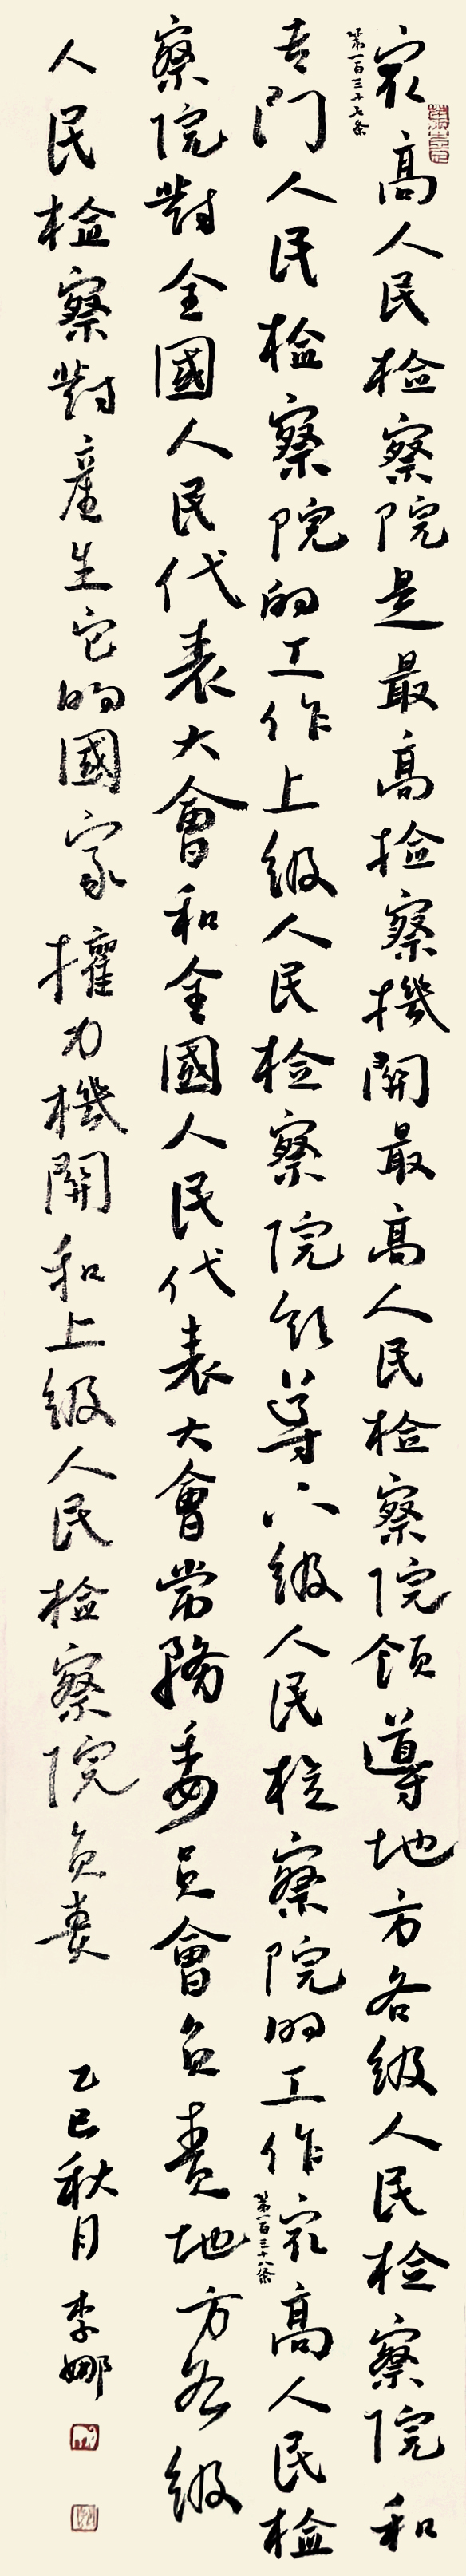 冣高人民检察院是最高检察機関最高人民检察院領導地方各级人民检察院和
第一百三十七条
专門人民检察院的工作上级人民检察院领導下级人民检察院的工作冣高人民检
第一百三十八条
察院對全國人民代表大會和全國人民代表大會常務委员會负责地方各级
人民检察對產生它的國家權力機関和上级人民检察院负责
乙巳秋月 李娜